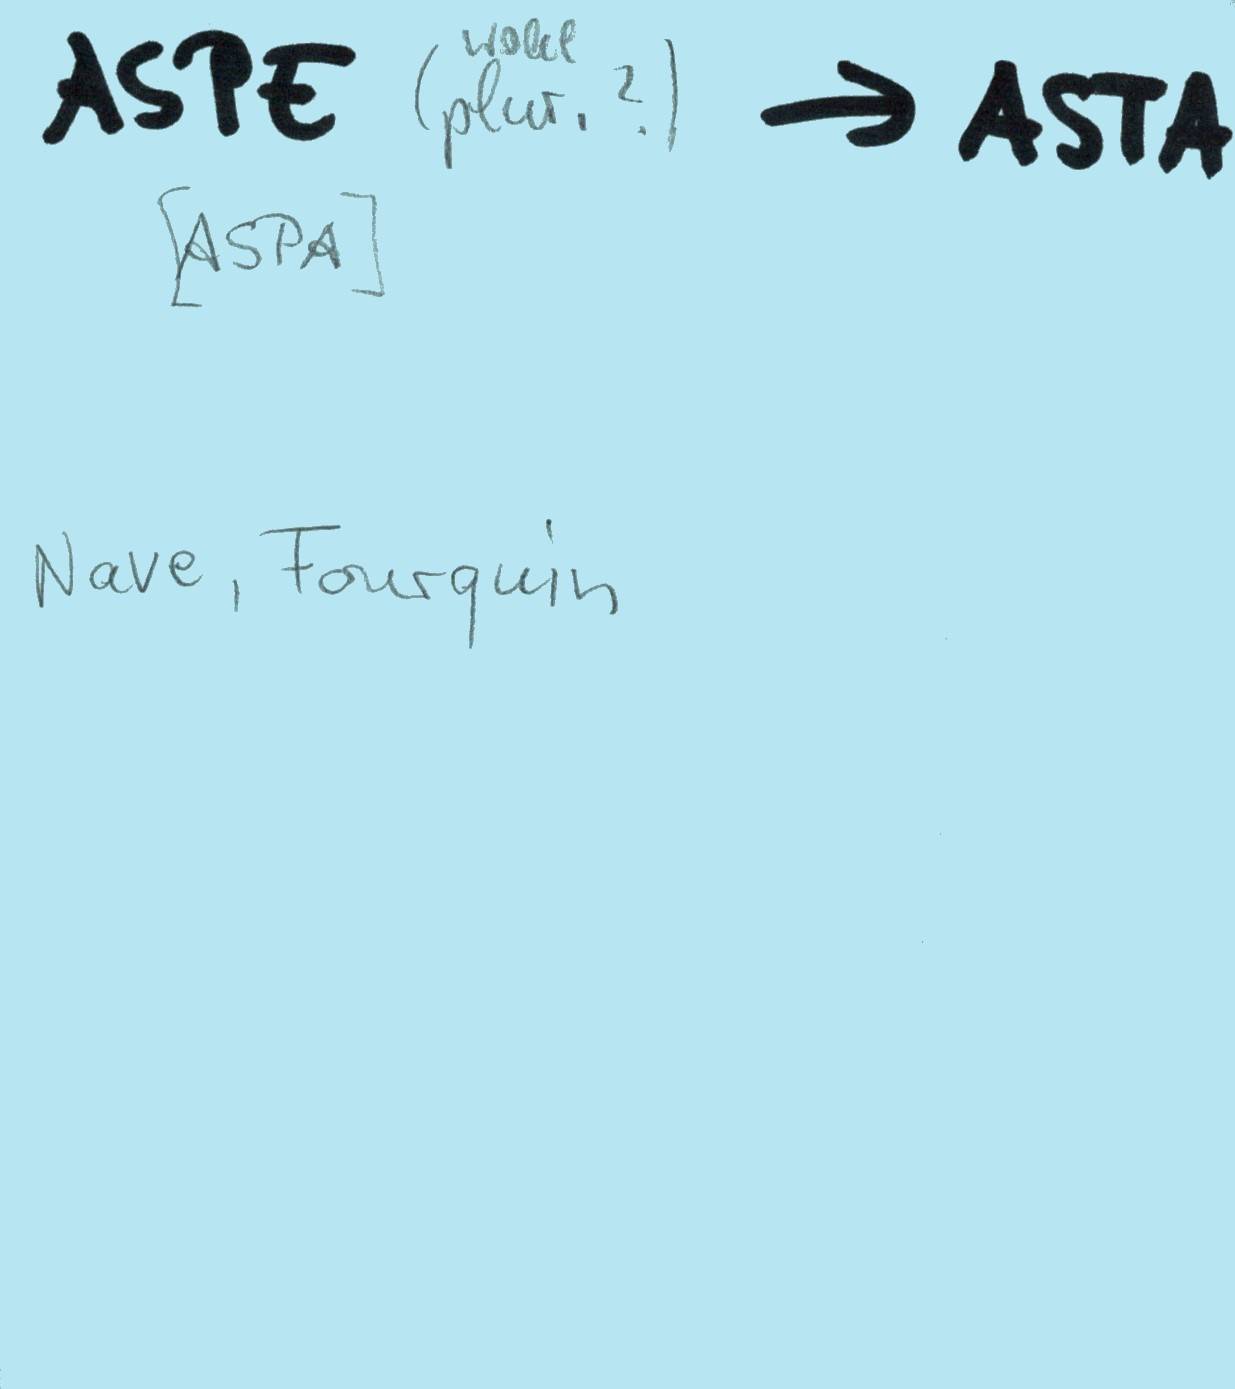 ASPE (wohl plur. ?) → ASTA
[ASPA]
Nave, Fourquin